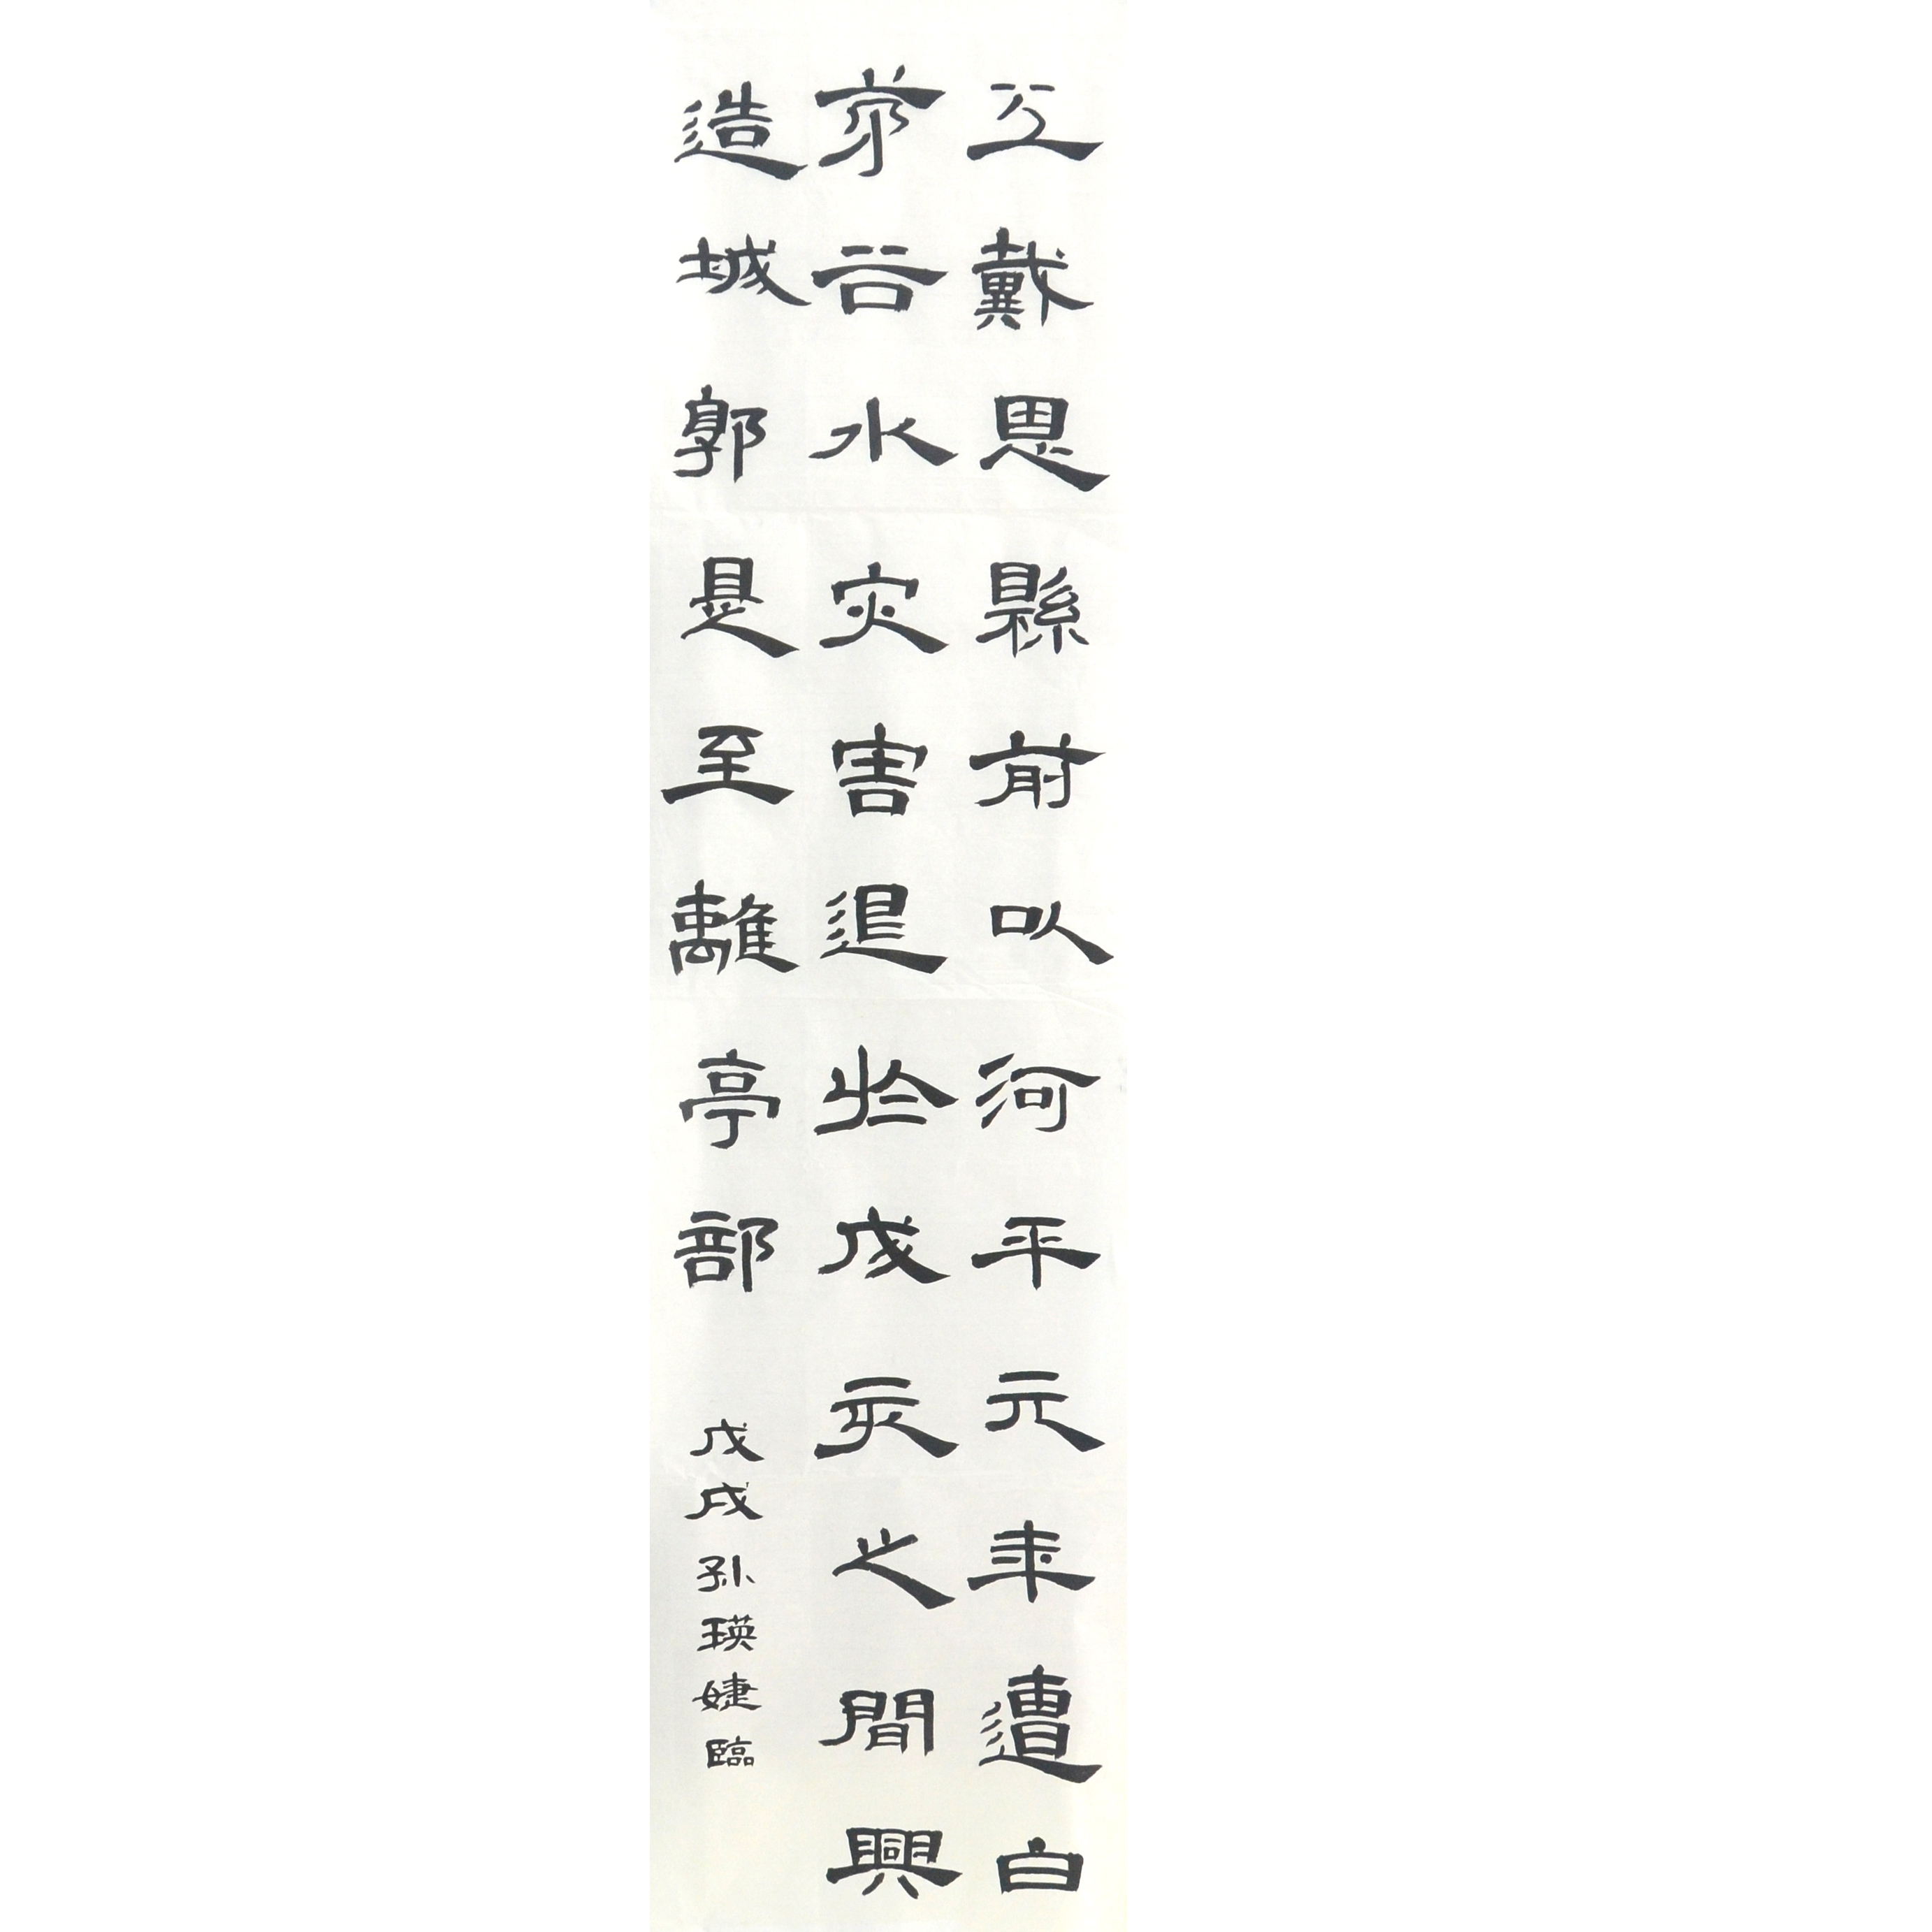 工戴恩縣前以河平元年遭白
茅谷水灾害退於戊亥之間興
造城郭是至離亭部
戊戌孙瑛婕臨